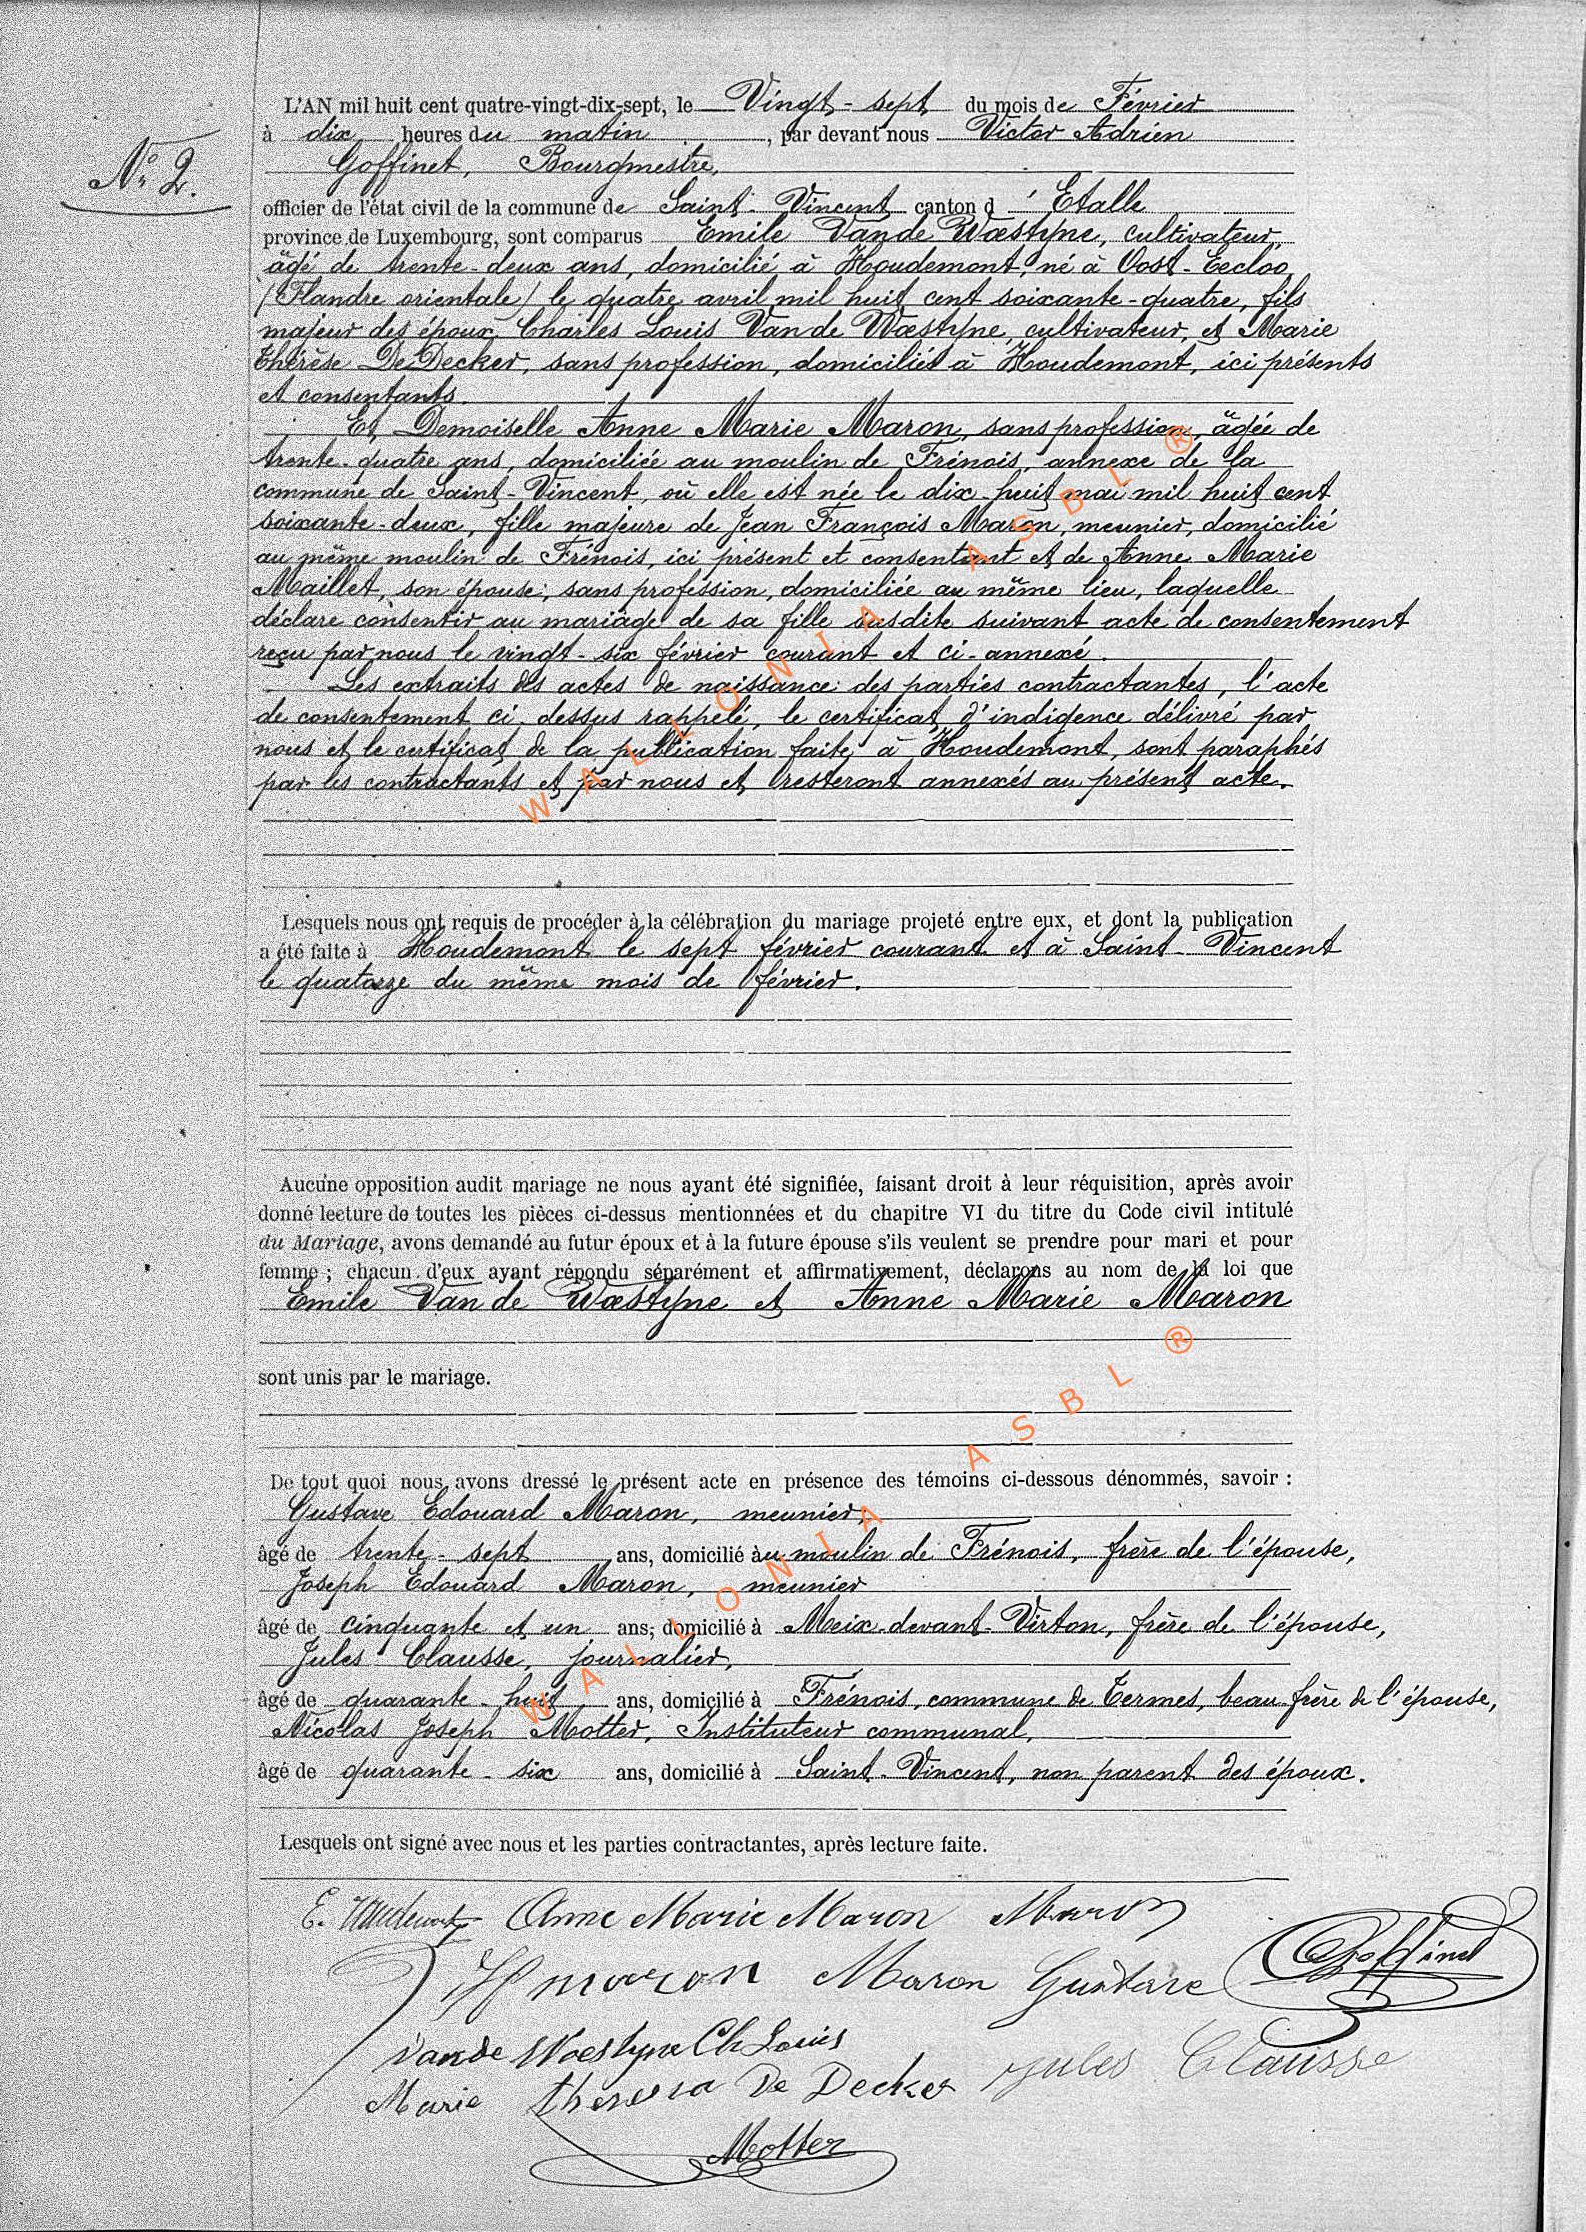 L'AN mil huit cent quatre-vingt-dix-sept, le Vingt-sept du mois de Février
à dix heures du matin, par devant nous Victor Adrien
N° 2.
Goffinet, Bourgmestre,
officier de l'état civil de la commune de Saint-Vincent canton d'Etalle
province de Luxembourg, sont comparus Emile Van de Wœstyne, cultivateur,
âgé de trente-deux ans, domicilié à Houdemont, né à Oost-Eecloo
(Flandre orientale) le quatre avril mil huit cent soixante-quatre, fils
majeur des époux Charles Louis Van de Wœstyne, cultivateur, et Marie
Thérèse De Decker, sans profession, domiciliés à Houdemont, ici présents
et consentants.
Et Demoiselle Anne Marie Maron, sans profession, âgée de
trente-quatre ans, domiciliée au moulin de Frénois, annexe de la
commune de Saint-Vincent, où elle est née le dix-huit mai mil huit cent
soixante-deux, fille majeure de Jean François Maron, meunier, domicilié
au même moulin de Frénois, ici présent et consentant et de Anne Marie
Maillet, son épouse, sans profession, domiciliée au même lieu, laquelle
déclare consentir au mariage de sa fille susdite suivant acte de consentement
reçu par nous le vingt-six février courant et ci-annexé.
Les extraits des actes de naissance des parties contractantes, l'acte
de consentement ci-dessus rappelé, le certificat d'indigence délivré par
nous et le certificat de la publication faite à Houdemont, sont paraphés
par les contractants et par nous et resteront annexés au présent acte.
Lesquels nous ont requis de procéder à la célébration du mariage projeté entre eux, et dont la publication
a été faite à Houdemont le sept février courant et à Saint-Vincent
le quatorze du même mois de février.
Aucune opposition audit mariage ne nous ayant été signifiée, faisant droit à leur réquisition, après avoir
donné lecture de toutes les pièces ci-dessus mentionnées et du chapitre VI du titre du Code civil intitulé
du Mariage, avons demandé au futur époux et à la future épouse s'ils veulent se prendre pour mari et pour
femme ; chacun d'eux ayant répondu séparément et affirmativement, déclarons au nom de la loi que
Emile Van de Wœstyne et Anne Marie Maron
sont unis par le mariage.
De tout quoi nous avons dressé le présent acte en présence des témoins ci-dessous dénommés, savoir :
Gustave Edouard Maron, meunier,
âgé de trente-sept ans, domicilié àu moulin de Frénois, frère de l'épouse,
Joseph Edouard Maron, meunier
âgé de cinquante et un ans, domicilié à Meix-devant-Virton, frère de l'épouse,
Jules Clausse, journalier,
âgé de quarante-huit ans, domicilié à Frénois, commune de Termes, beau-frère de l'épouse,
Nicolas Joseph Motter, Instituteur communal,
âgé de quarante-six ans, domicilié à Saint-Vincent, non parent des époux.
Lesquels ont signé avec nous et les parties contractantes, après lecture faite.
Anne Marie Maron Maron
maron Maron Gustave Goffinet
Vande Woestyne Ch Louis
Jules Clausse
Marie theresia De Decker
Motter
WALLONIA ASBL ®
WALLONIA ASBL ®